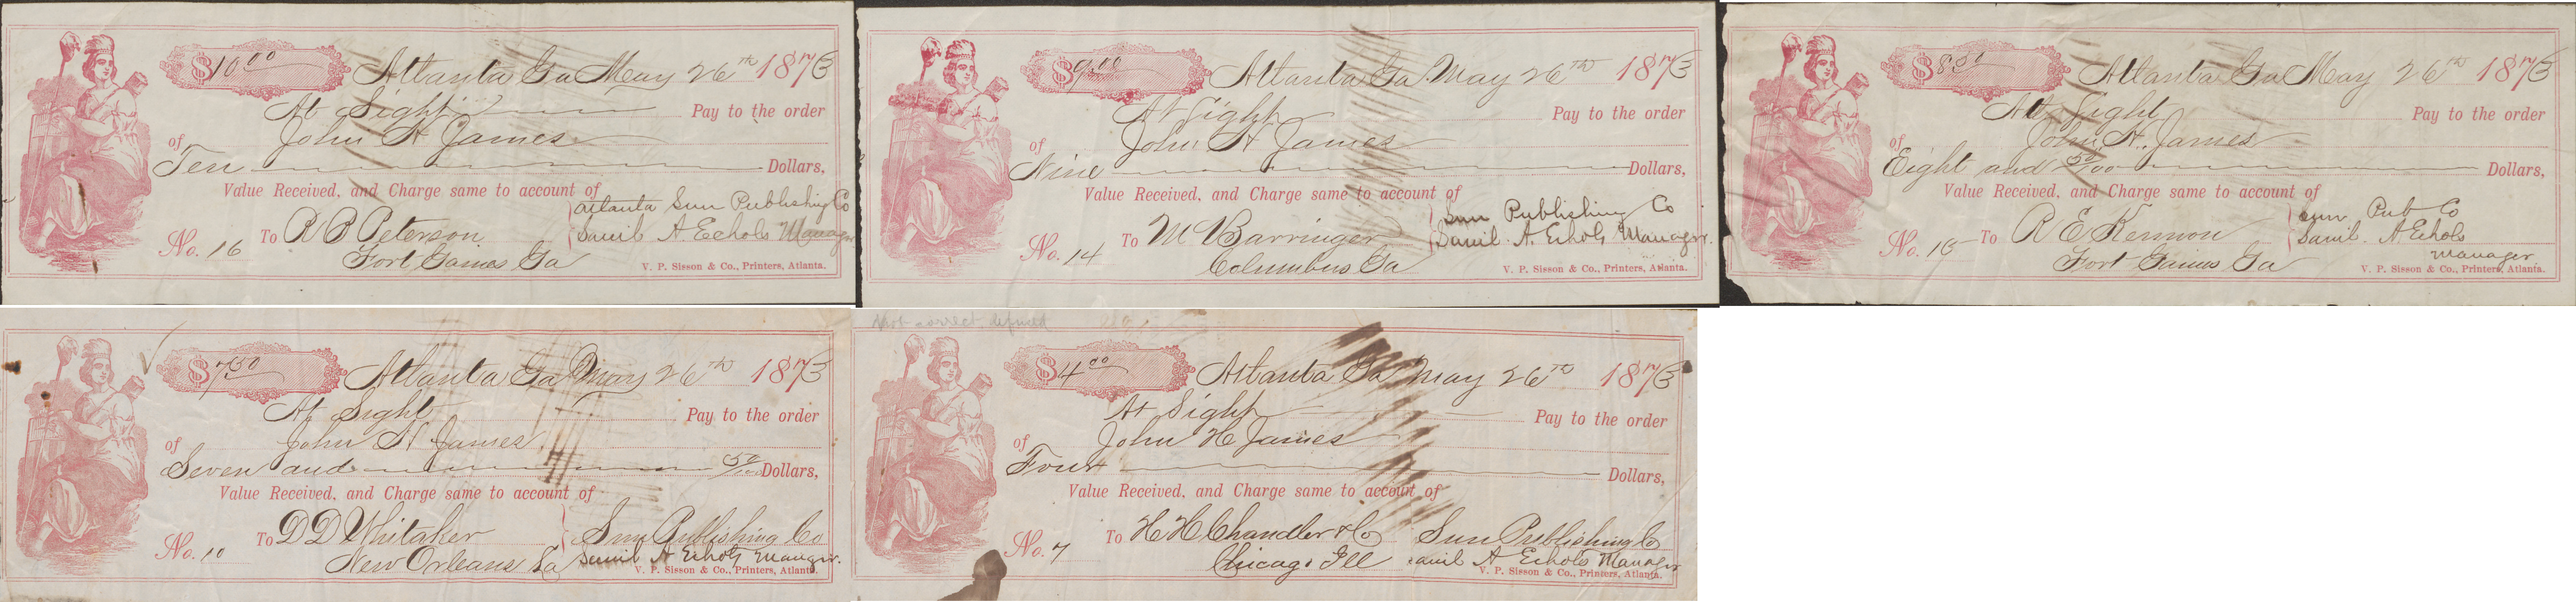 $10.00 Atlanta Ga May 26th 1873
At Sight Pay to the order
of John H James
Ten Dollars,
Value Received, and Charge same to account of
To R B Peterson Atlanta Sun Publishing Co
No. 16 Fort Gaines Ga Saml A Echols Manager
V. P. Sisson & Co., Printers, Atlanta.
$9.00 Atlanta Ga May 26th 1873
At Sight Pay to the order
of John H James
Nine Dollars,
Value Received, and Charge same to account of
To M Barringer Sun Publishing Co
No. 14 Columbus Ga Saml. A. Echols Manager.
V. P. Sisson & Co., Printers, Atlanta.
$8.50 Atlanta Ga May 26th 1873
At Sight Pay to the order
of John H. James
Eight and 50/100 Dollars,
Value Received, and Charge same to account of
To R E Kennon Sun Pub Co
No. Fort Gaines Ga Saml. A Echols
Manager
V. P. Sisson & Co., Printers, Atlanta.
$7.50 Atlanta Ga May 26th 1873
At Sight Pay to the order
of John H James
Seven and 50/100 Dollars,
Value Received, and Charge same to account of
To D D Whitaker Sun Publishing Co
No. 10 New Orleans La Saml A Echols Manager.
V. P. Sisson & Co., Printers, Atlanta.
Not correct refused
$4.00 Atlanta Ga May 26th 1873
At Sight Pay to the order
of John H James
Four Dollars,
Value Received, and Charge same to account of
To H H Chandler & Co Sun Publishing Co
No. 7 Chicago Ill Saml A Echols Manager
V. P. Sisson & Co., Printers, Atlanta.